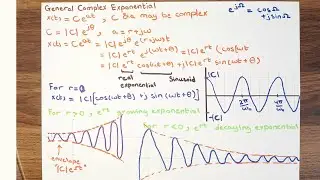 General Complex Exponential
x(t) = Ce^at , C & a may be complex
e^jΩ = cosΩ + jsinΩ
C = |C| e^jθ , a = r+jω
x(t) = Ce^at = |C| e^jθ e^(r+jω)t
= |C| e^rt e^j(ωt+θ) = |C| e^rt (cos(ωt
= |C| e^rt cos(ωt+θ) + j|C| e^rt sin(ωt+θ)
real exponential
Sinusoid
For r=0
x(t) = |C| [cos(ωt+θ) + j sin(ωt+θ)]
|C|
-|C|
2π/ω
4π/ω
For r>0 , e^rt growing exponential
For r<0 , e^rt decaying exponential
envelope
"|C| e^rt"